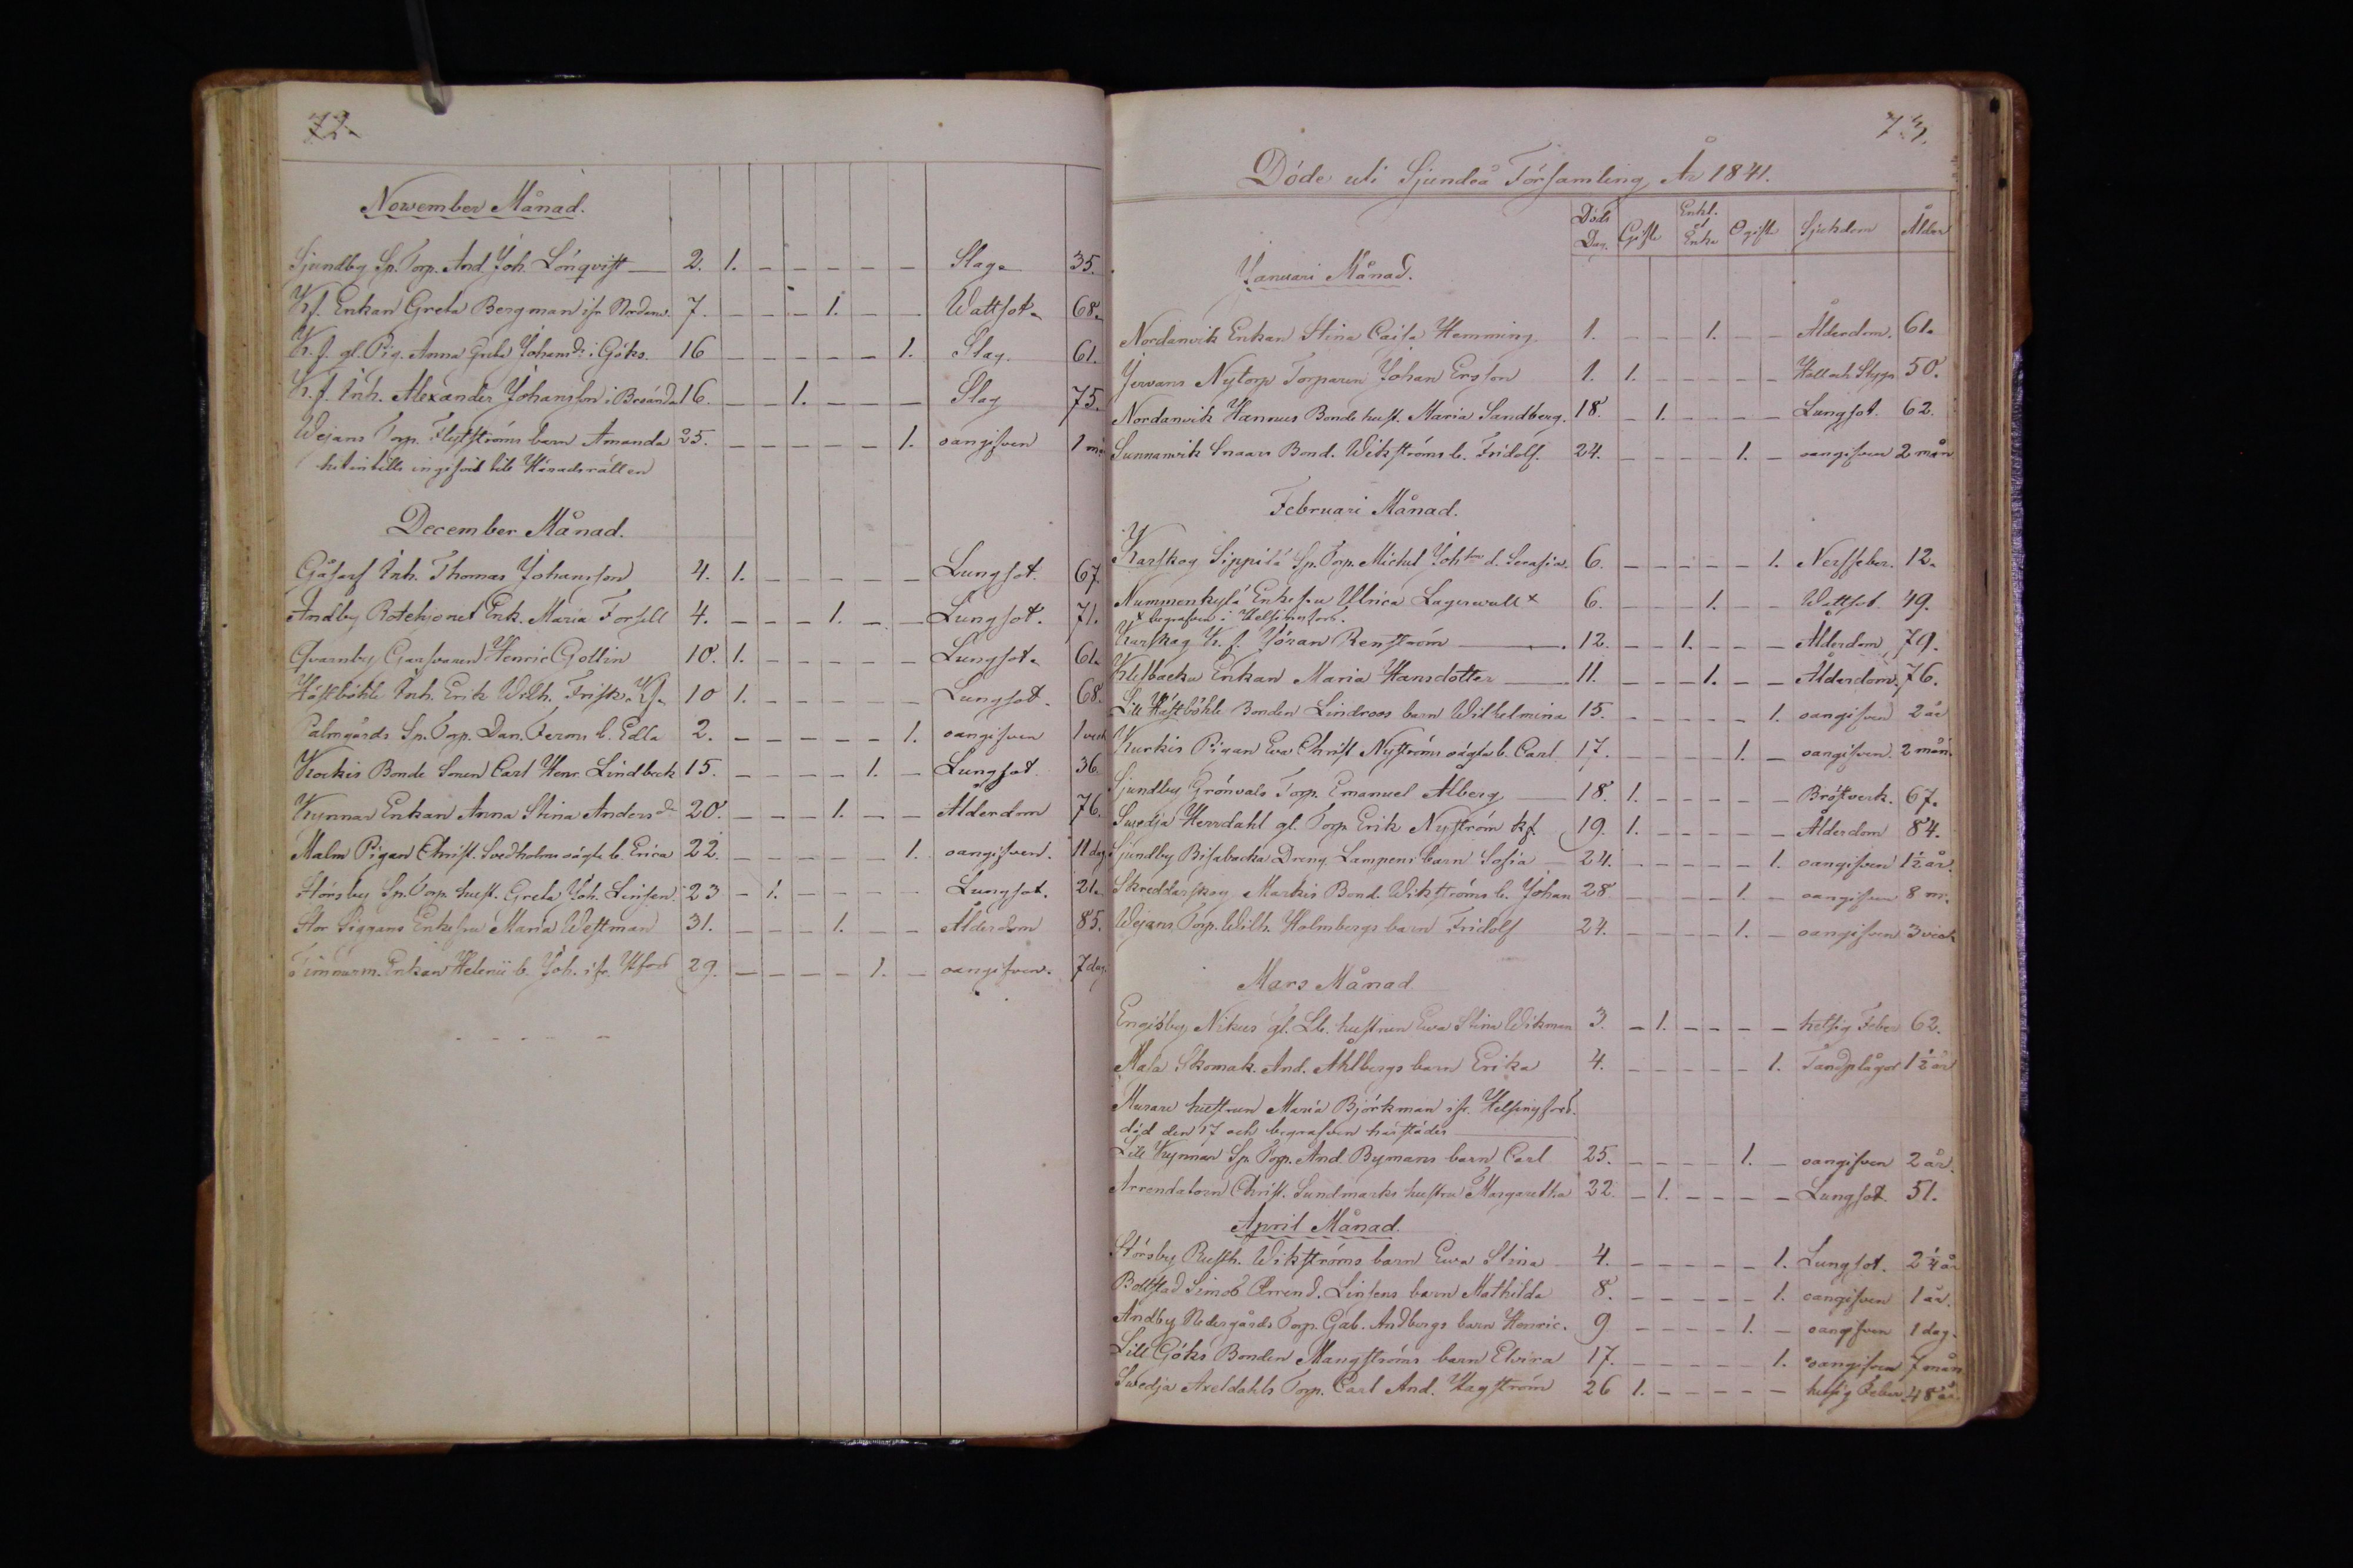 72.
November Månad.
Sjundby Sp. Torp. And. Joh. Lönqvist — 2. 1. – – – – – Slag. 35.
Kf. Enkan Greta Bergman ifr. Nordanv. 7. – – – 1. – – Wattsot. 68.
K. f. gl. Pig. Anna Greta Johansd. i Göks. 16 – – – – – 1. Slag. 61.
K. f. Inh. Alexander Johansson i 16. – – 1. – – – Slag 75.
Wejans Torp. Flytströms barn Amanda 25. – – – – – 1. oangifven 1 mån
hitintills ingifvit till Häradsrätten
December Månad.
Gåsarf Inh. Thomas Johansson 4. 1. – – – – – Lungsot. 67.
Andby Rotehjonet Enk. Maria Forsell 4. – – – 1. – – Lungsot. 71.
Qvarnby Garfvaren Henric Gottin 10. 1. – – – – – Lungsot. 61.
Hästböhle Inh. Erik Wilh. Frisk. Kf. 10 1. – – – – – Lungsot. 68.
Palmgårds Sp. Torp. Dan. Ferms b. Edla 2. – – – – – 1. oangifven 1 veck
Kockis Bonde Sonen Carl Henr. Lindbeck 15. – – – – 1. – Lungsot. 36.
Kynnar Enkan Anna Stina Andersdr 20. – – – 1. – – Ålderdom 76.
Malm Pigan Christ. Svedholms oägta b. Erica 22. – – – – – 1. oangifven. 11 dag.
Störsby Sp. Torp. hust. Greta Joh. Linsen. 23 – 1. – – – – Lungsot. 21.
Stor Siggans Enkefru Maria Westman 31. – – – 1. – – Ålderdom 85.
Timmarm. Enkan Helenii b. Joh. ifr. Hfors 29. – – – – 1. – oangifven. 7 dag.
73.
Döde uti Sjundeå Församling År 1841.
Döds Dag. Gifte Enkl. el. Enka Ogift Sjukdom Ålder
Januari Månad.
Nordanvik Enkan Stina Caisa Hemming 1. – – – 1. – – Ålderdom. 61.
Jervans Nytorp Torparen Johan Ersson 1. 1. – – – – – Håll och Stygn 50.
Nordanvik Hannus Bonde hust. Maria Sandberg. 18. – 1. – – – – Lungsot. 62.
Sunnanvik Snaars Bond. Wikströms b. Fridolf. 24. – – – – 1. – oangifven 2 mån
Februari Månad.
Karskog Sippilä Sp. Torp. Michel Johsons d. Serafia. 6. – – – – – 1. Nerffeber. 12.
Nummenkylä Enkefru Ulrica Lagervall x 6. – – – 1. – – Wattsot 49.
x begrafven i Helsingfors.
Karskog K. f. Jöran Renström — 12. – – 1. – – – Ålderdom 79.
Klelbacka Enkan Maria Hansdotter — 11. – – – 1. – – Ålderdom. 76.
Lill Hästböhle Bonden Lindroos barn Wilhelmina 15. – – – – – 1. oangifven 2 år
Kurkis Pigan Eva Christ. Nyströms oägta b. Carl 17. – – – – 1. – oangifven. 2 mån.
Sjundby Grönvals Torp. Emanuel Alberg — 18. 1. – – – – – Bröstverk. 67.
Svedja Herrdahl gl. Torp. Erik Nyström kf. 19. 1. – – – – – Ålderdom 84.
Sjundby Bisabacka Dreng. Lampens barn Sofia — 24. – – – – – 1. oangifven 1½ år.
Skreddarskog Markis Bond. Wikströms b. Johan 28 – – – – 1. – oangifven 8 m.
Wejans. Torp. Wilh. Holmbergs barn Fridolf 24. – – – – 1. – oangifven 3 veck
Mars Månad
Engisby Nikus gl. Lb. hustrun Eva Stina Wikman 3. – 1. – – – – hetsig Feber 62.
Masa Skomak. And. Åhlbergs barn Erika 4. – – – – – 1. Tandplågor 1½ år
Murare hustrun Maria Björkman ifr. Helsingfors.
död den 17 och begrafven härstädes —
Lill Kynnar Sp. Torp. And. Bymans barn Carl 25. – – – – 1. – oangifven 2 år.
Arrendatorn Christ. Sundmarks hustru Margaretha 22. – 1. – – – – Lungsot. 51.
April Månad.
Störsby Rusth. Wikströms barn Eva Stina 4. – – – – – 1. Lungsot. 2¼ år
Bollstad Simos Arrend. Linsens barn Mathilda 8. – – – – – 1. oangifven 1 år.
Andby Nedergårds Torp. Gab. Andbergs barn Henric. 9 – – – – 1. – oangifven 1 dag.
Lill Göks Bonden Mangströms barn Elvira 17. – – – – – 1. oangifven 7 mån
Svedja Axeldahls Torp. Carl And. Hagström 26 1. – – – – – hetsig Feber 48 år.